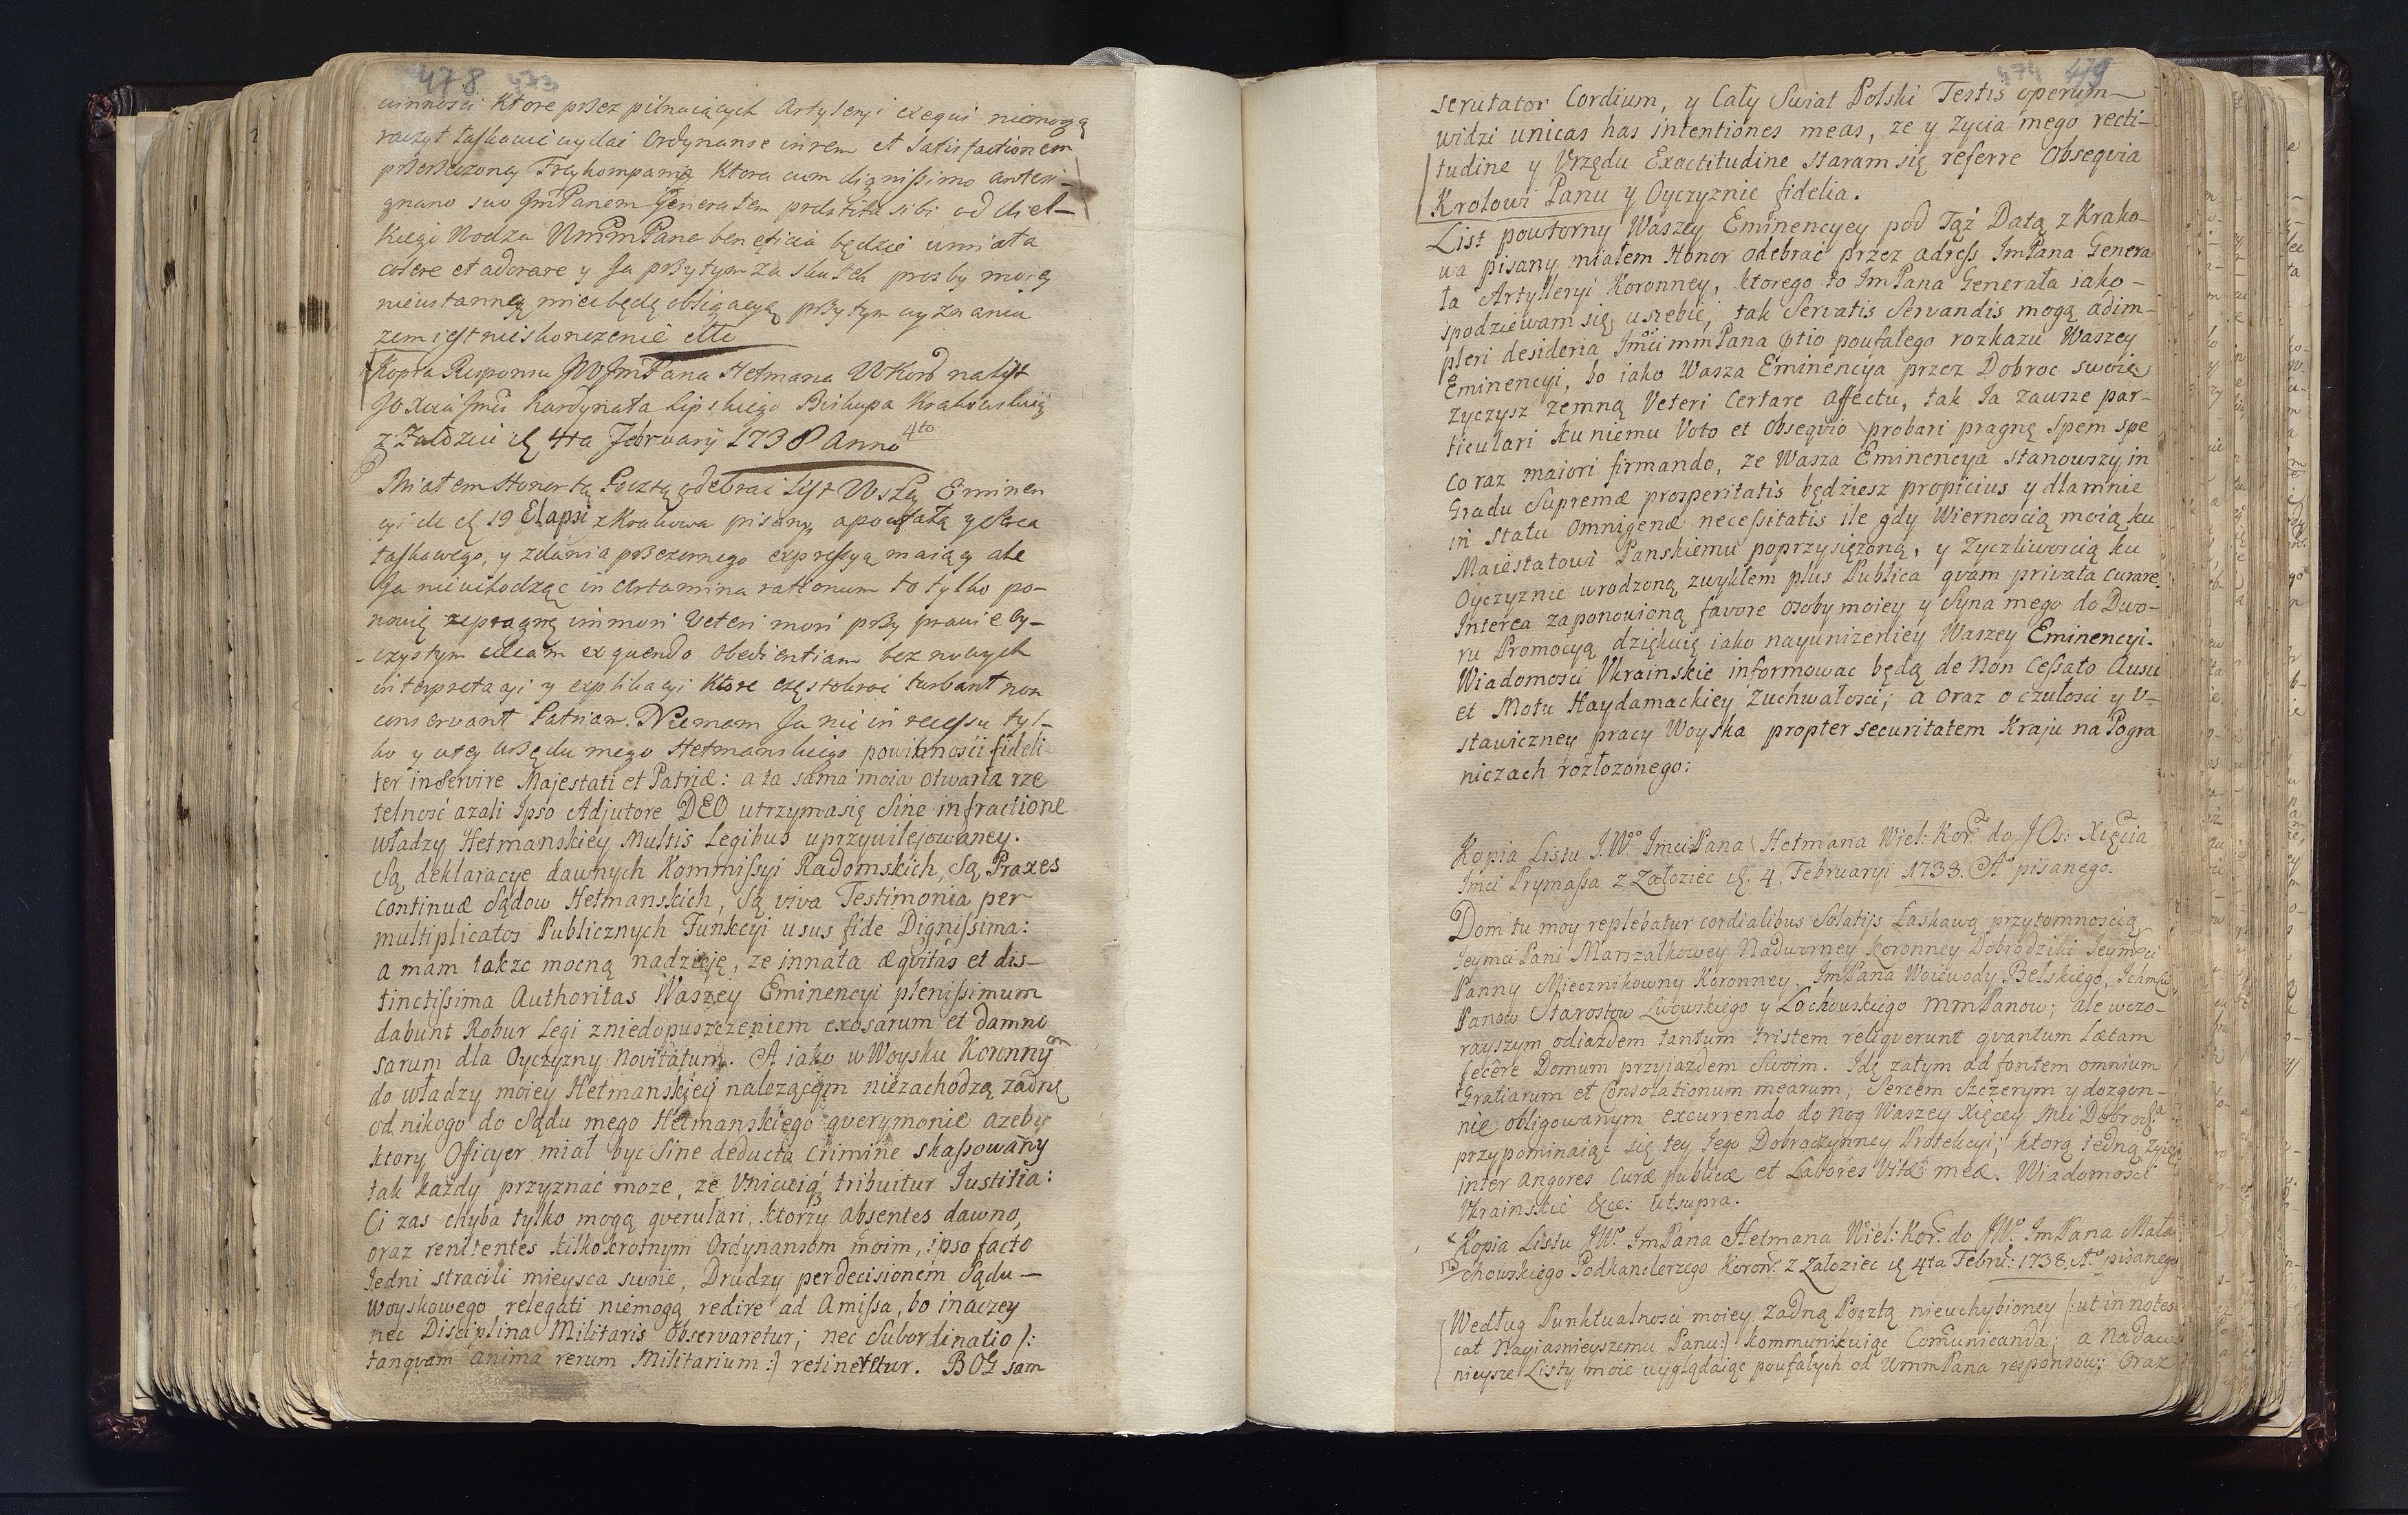 478 473
winnosci ktore przez pilnuiących Artyleryi exequi niemogą
raczył łaskawie wydać Ordynanse in rem et Satisfactionem
Freykompanią ktora cum dignissimo antesi-
gnano suo JmPanem Generałem od Wiel-
kiego Wodza UMmPana beneficia będzie umiała
colere et adorare y Ja przytym za skutek prosby moiey
nieustanną miec będę obligacyą przytym wyznaniu
zem iest nieskonczenie ette
Kopia Responsu JWJmPana Hetmana WKor na list
JOXcia Jmci Kardynała Lipskiego Biskupa Krakowskiego
z Załoziec d 4ta February 1738 Anno 4to
Miałem Honor tą Pocztą odebrac list Wszey Eminen
cyi de d 19 Elapsi z Krakowa pisany, a poufałą y serca
łaskawego, y zdania przezornego expressyą maiący ale
Ja niewchodząc in certamina rationum to tylko po-
nowię ze pragnę inniti Veteri mori przy prawie oy-
czystym illam exquendo obedientiam bez nowych
interpretacyi y explikacyi ktore częstokroć turbant non
conservant Patriam. Niemam Ja nic in recessu tyl-
ko y a tey urzędu mego Hetmanskiego powinnosci fideli
ter inservire Majestati et Patriæ: a ta sama moia otwarta rze
telność azali Ipso Adjutore DEO utrzyma się Sine infractione
władzy Hetmanskiey Multis Legibus uprzywilejowaney.
Są deklaracye dawnych Kommissyi Radomskich, Są Praxes
continuæ Sądow Hetmanskich, Są viva Testimonia per
multiplicatos Publicznych Funkcyi usus fide Dignissima:
a mam także mocną nadzieję, ze innata æqvitas et dis-
tinctissima Authoritas Waszey Eminencyi plenissimum
dabunt Robur Legi z niedopuszczeniem exosarum et damno
sarum dla Oyczyzny Novitatum. A iako w Woysku Koronnym
do władzy moiey Hetmanskiey nalezącym niezachodzą zadne
od nikogo do Sądu mego Hetmanskiego qverymonie azeby
ktory Officyer miał byc Sine deducta Crimine skassowany
tak kazdy przyznać moze, ze Unicuiq tribuitur Iustitia:
Ci zas chyba tylko mogą qverulari, ktorzy absentes dawno,
oraz renitentes kilkokrotnym Ordynansom moim, ipso facto
Iedni stracili mieysca swoie, Drudzy per decisionem Sądu-
woyskowego relegati niemogą redire ad Amissa, bo inaczey
nec Disciplina Militaris observaretur; nec Subordinatio /:
tanqvam anima rerum Militarium :/ retinetur. BOG sam
474 479
scrutator Cordium, y Cały Swiat Polski Testis operum-
widzi unicas has intentiones meas, ze y Zycia mego recti-
tudine y Vrzędu Exactitudine staram się referre Obseqvia
Krolowi Panu y Oyczyznie fidelia.
List powtorny Waszey Eminencyey pod Tąż Datą z Krako-
wa pisany miałem Honor odebrać przez adress ImPana Genera
ła Artylleryi Koronney, ktorego to ImPana Generała iako-
spodziewam się u siebie, tak Servatis Servandis mogą adim-
pleri desideria JmcimmPana otio poufałego rozkazu Waszey
Eminencyi, bo iako Wasza Eminencya przez Dobroc swoię
zyczysz zemną Veteri Certare affectu, tak Ia zawsze par-
ticulari ku niemu Voto et obseqvio probari pragnę Spem spe
co raz maiori firmando, ze Wasza Eminencya stanowszy in
Gradu Supremæ prosperitatis będziesz propicius y dlamnie
in Statu Omnigenæ necessitatis ile gdy Wiernoscią moią ku
Maiestatowi Panskiemu poprzysięzoną, y Zyczliwoscią ku
Oyczyznie wrodzoną zwykłem plus Publica qvam privata curare.
Interea zaponowioną favore osoby moiey y Syna mego do Dwo-
ru Promocyą dziękuię iako nayunizeniey Waszey Eminencyi.
Wiadomosci Vkrainskie informowac będą de Non Cessato Ausu
et Motu Haydamackiey Zuchwałosci; a oraz o czułosci y v-
stawiczney pracy Woyska propter securitatem Kraju na Pogra
niczach rozłozonego:
Kopia Lissu J.Wo. ImciPana Hetmana Wiel: Kor. do J.Os: Xięcia
Imci Prymassa z Załoziec d. 4. Februaryi 1738. Ao pisanego.
Dom tu moy replebatur cordialibus Solatijs Łaskawą przytomnoscią
Ieymci Pani Marszałkowey Nadworney Koronney Dobrodziki Ieymci
Panny Miecznikowny Koronney, ImPana Woiewody Bełskiego, Ichmci
Panow Starostow Lwowskiego y Lochowskiego mmPanow; ale wczo-
rayszym odiazdem tantum tristem reliqverunt qvantum Lætam
fecêre Domum przyjazdem Swoim. Idę zatym ad fontem omnium
Gratiarum et Consolationum mearum, Sercem Szczerym y dozgon-
nie obligowanym excurrendo do nog Waszey Xięcey Mci Dobrodza
przypominaiąc się tey Iego Dobroczynney Protekcyi; ktorą iedną zyię
inter angores Curæ publicæ et Labores Vitæ meæ. Wiadomosci
Vkrainskie &ce: utsupra.
Kopia Lissu JWo. ImPana Hetmana Wiel: Kor. do JWo. ImPana Mała
chowskiego Podkanclerzego Koron. z Załoziec d 4ta Febru: 1738. Ao. pisanego
Według Punktualnosci moiey zadną Pocztą nieuchybioney /: ut in notes
cat Nayiasnieyszemu Panu :/ kommunikuiąc Comunicanda; a na daw
nieysze Listy moie wyglądaiąc poufałych od UmmPana responsow; Oraz